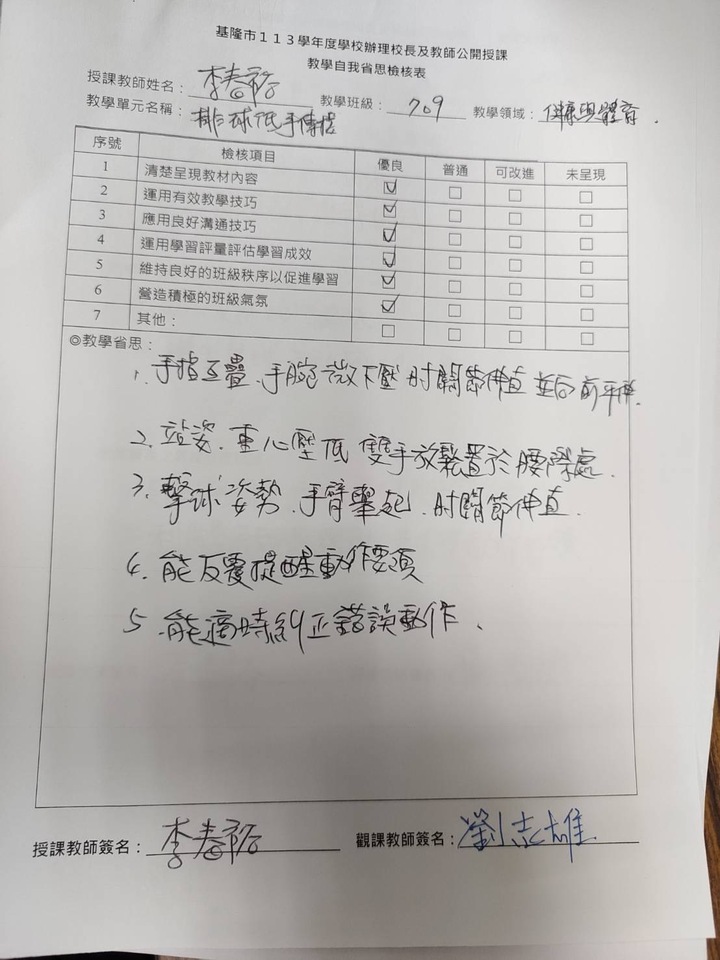 基隆市１１３學年度學校辦理校長及教師公開授課
教學自我省思檢核表
授課教師姓名：李春裕
教學單元名稱：排球低手傳接 教學班級：709 教學領域：健康與體育.
序號 檢核項目 優良 普通 可改進 未呈現
1 清楚呈現教材內容 ☑ □ □ □
2 運用有效教學技巧 ☑ □ □ □
3 應用良好溝通技巧 ☑ □ □ □
4 運用學習評量評估學習成效 ☑ □ □ □
5 維持良好的班級秩序以促進學習 ☑ □ □ □
6 營造積極的班級氣氛 ☑ □ □ □
7 其他： □ □ □ □
◎教學省思：
1. 手指互疊、手腕微下壓 肘關節伸直 並向前平伸.
2. 站姿、重心壓低 雙手放鬆置於腰際處.
3. 擊球姿勢、手臂舉起、肘關節伸直.
4. 能反覆提醒動作要領
5. 能適時糾正錯誤動作、
授課教師簽名：李春裕 觀課教師簽名：劉志雄